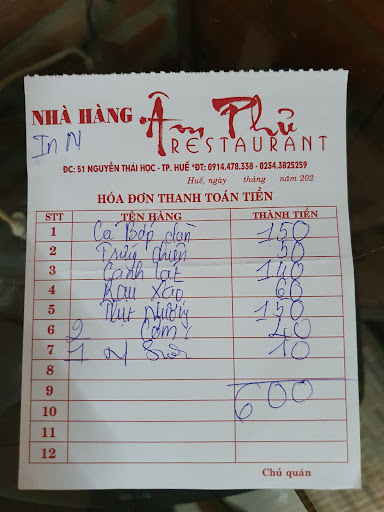 NHÀ HÀNG Âm Phủ
RESTAURANT
In N
ĐC: 51 NGUYỄN THÁI HỌC - TP. HUẾ *ĐT: 0914.478.338 - 0234.3825259
Huế, ngày tháng năm 202
HÓA ĐƠN THANH TOÁN TIỀN
STT TÊN HÀNG THÀNH TIỀN
1 Cá Bóp 150
2 50
3 Canh 140
4 Rau xào 60
5 Thịt nướng 150
6 2 Cơm 40
7 1 N Suối 10
8
9 600
10
11
12
Chủ quán